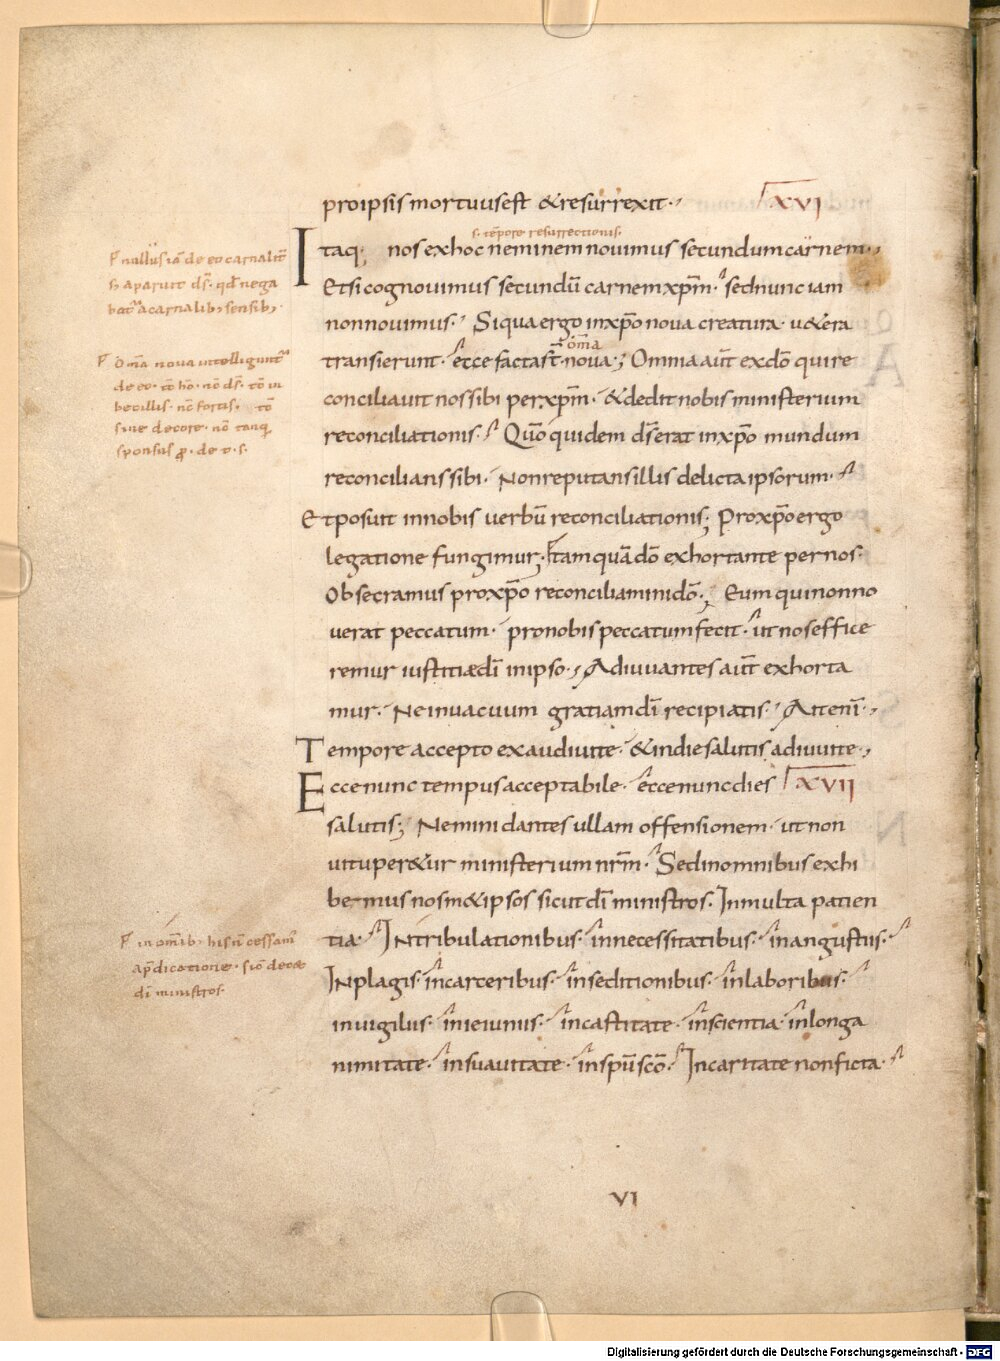 pro ipsis mortuus est & resurrexit. XVI
s. tēpore resurrectionis.
Itaq; nos ex hoc neminem nouimus secundum carnem.,
Et si cognouimus secundū carnem xp̄m. sed nunc iam
non nouimus. Siqua ergo in xp̄o noua creatura. u&era
om̄a
transierunt. ecce facta st̄ noua; Omnia aut̄ ex dō qui re
conciliauit nos sibi per xp̄m. & dedit nobis ministerium
reconciliationis. Quō quidem ds̄ erat in xp̄o mundum
reconcilians sibi. Non reputans illis delicta ipsorum.
Et posuit in nobis uerbū reconciliationis; Pro xp̄o ergo
legatione fungimur. tamquā dō exhortante per nos.
Obsecramus pro xp̄o reconciliamini dō.; Eum qui non no
uerat peccatum. pro nobis peccatum fecit. ut nos effice
remur iustitia dī in ipso., Adiuuantes aut̄ exhorta
mur. Ne in uacuum gratiam dī recipiatis. Att enī.,
Tempore accepto exaudiui te. & in die salutis adiuui te.,
Ecce nunc tempus acceptabile. ecce nunc dies XVII
salutis; Nemini dantes ullam offensionem. ut non
uituper&ur ministerium nr̄m. Sed in omnibus exhi
bemus nosm&ipsos sicut dī ministros. In multa patien
tia. In tribulationibus. in necessitatibus. in angustiis.
In plagis. in carceribus. in seditionibus. in laboribus.
in uigiliis. in ieiuniis. in castitate. in scientia. in longa
nimitate. in suauitate. in spū scō. In caritate non ficta.
nullus iā de eo carnalit̄
s; aparuit ds̄. qd̄ nega
bat̄ a carnalib; sensib;
om̄a noua intelligunt̄
de eo. nō hō. nō ds̄. nō in
becillis. nō fortis. nō
sine decore. nō tanq̄
sponsus
in om̄ib. his n̄ cessam̄
a p̄dicatione. sic̄ dece
dī ministros.
VI
Digitalisierung gefördert durch die Deutsche Forschungsgemeinschaft - DFG